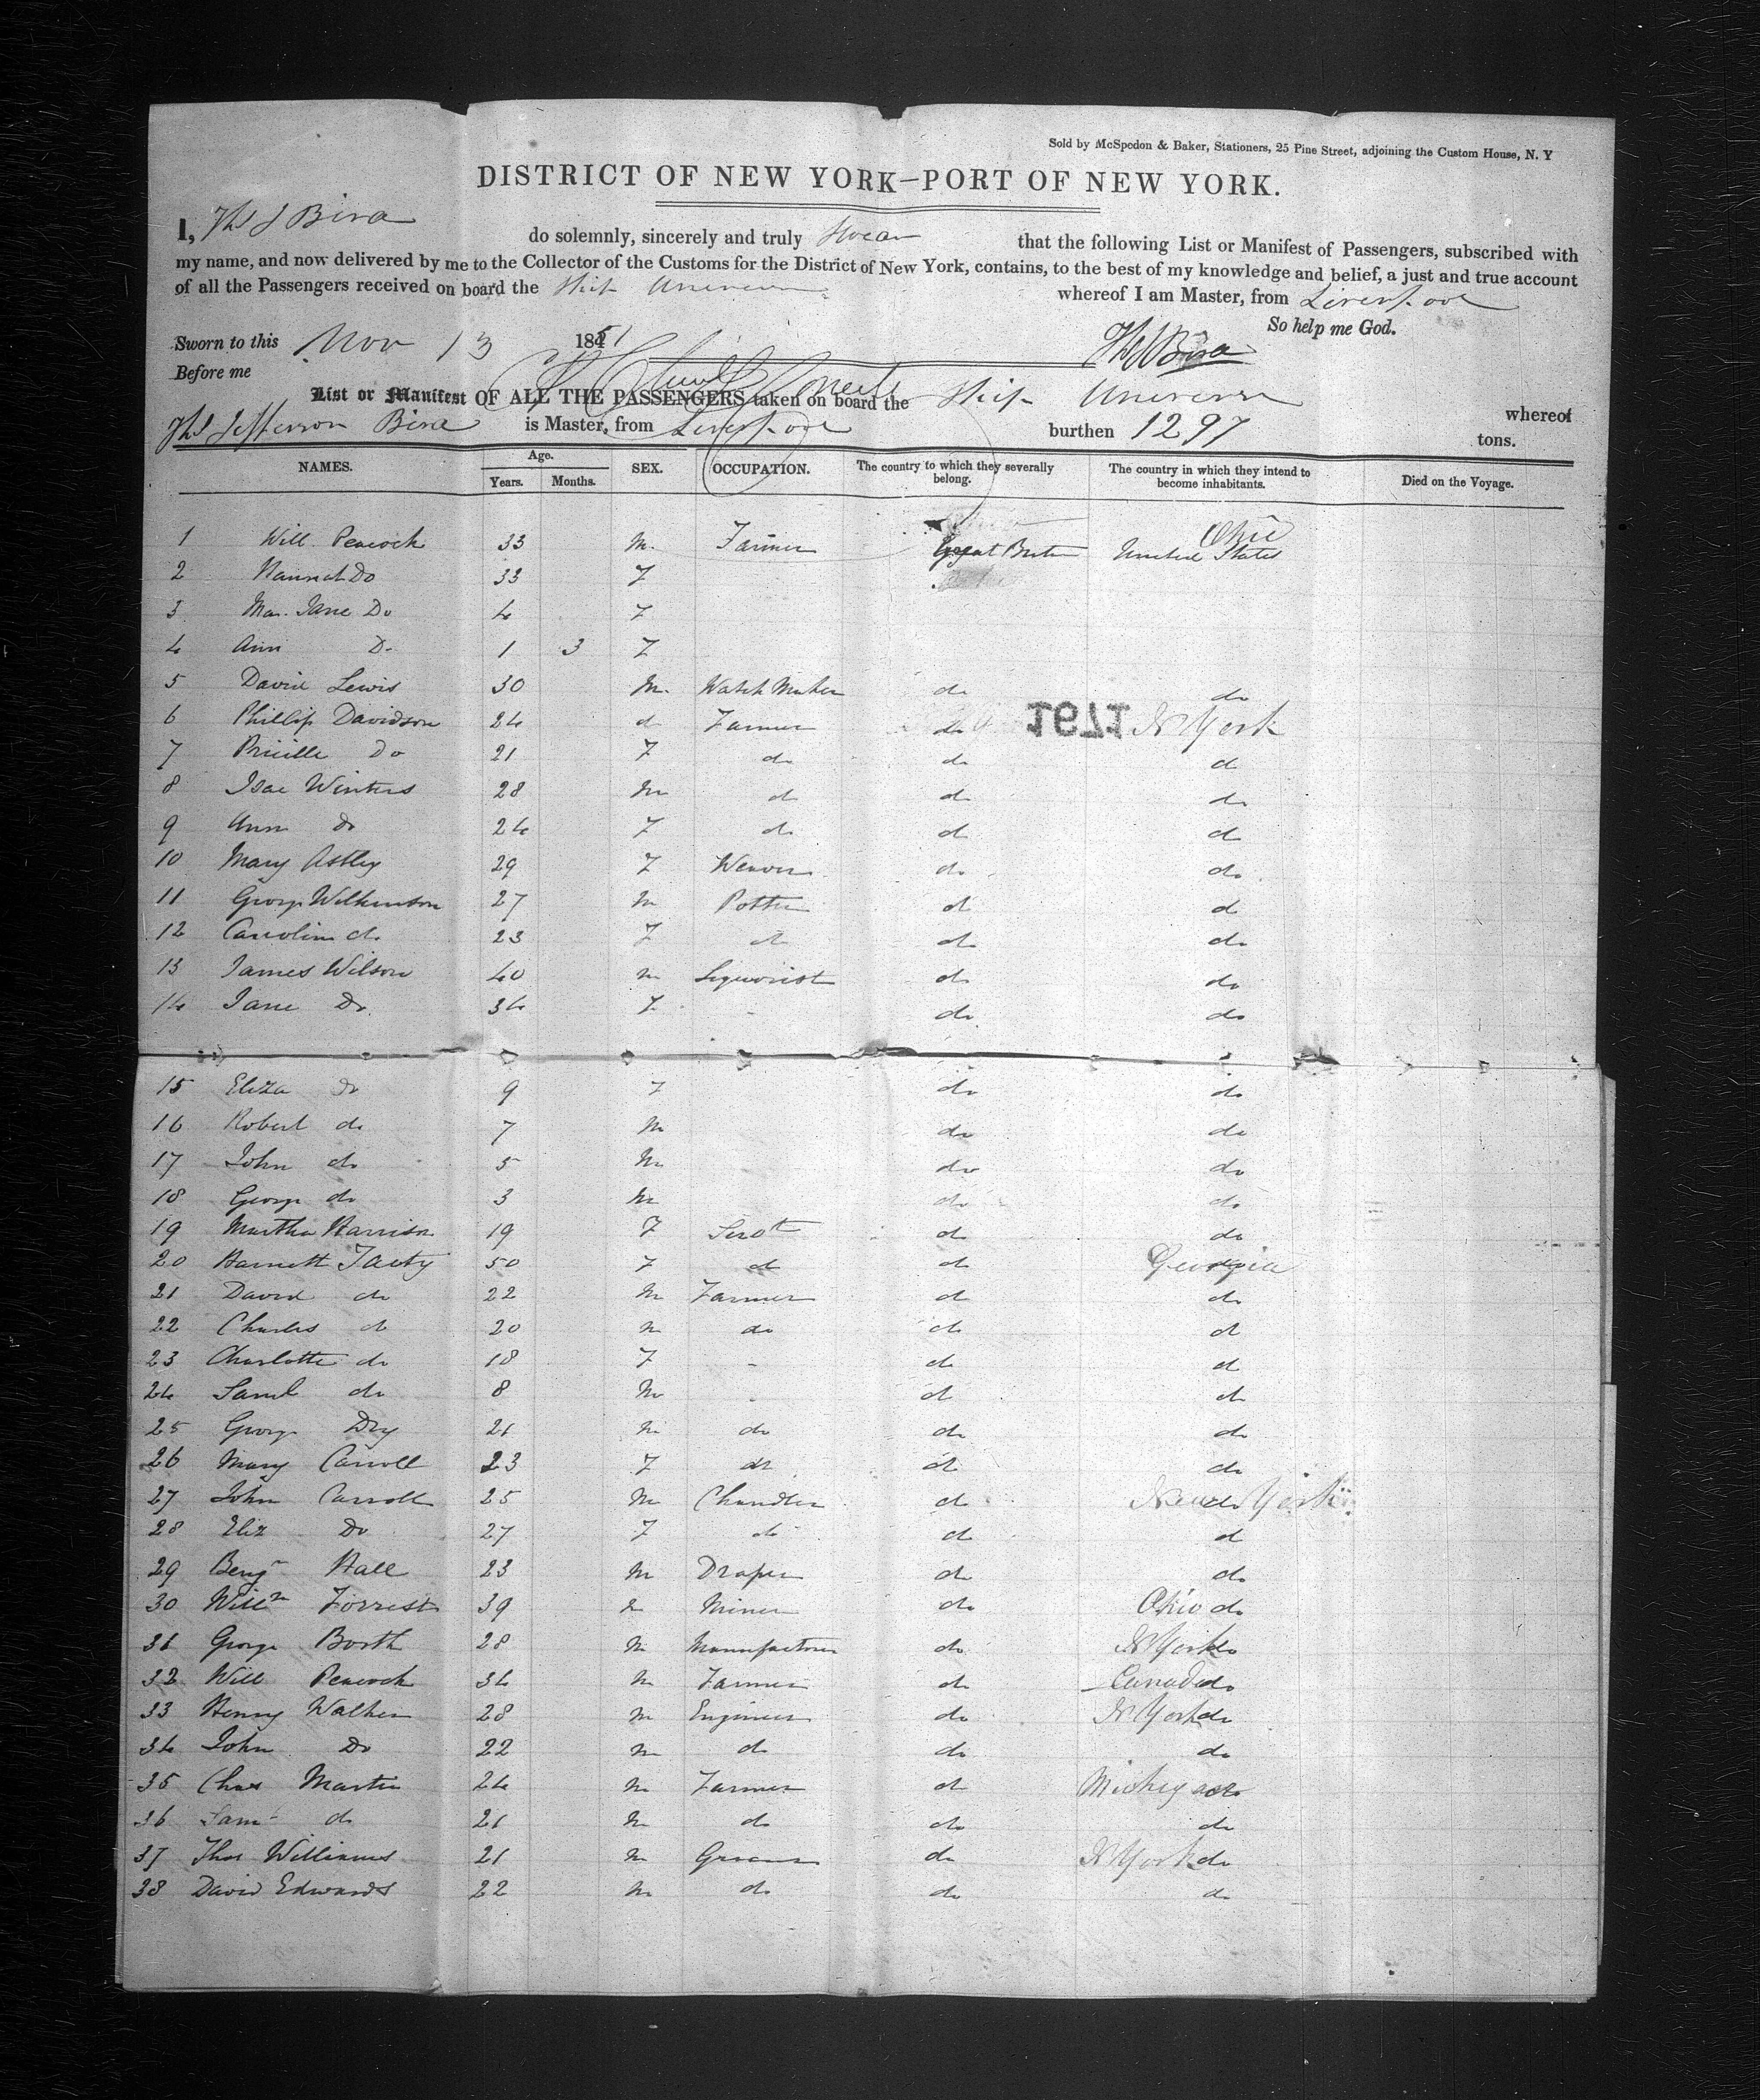 Sold by McSpedon & Baker, Stationers, 25 Pine Street, adjoining the Custom House, N. Y
DISTRICT OF NEW YORK—PORT OF NEW YORK.
I, Ths J Bird do solemnly, sincerely and truly Swear that the following List or Manifest of Passengers, subscribed with
my name, and now delivered by me to the Collector of the Customs for the District of New York, contains, to the best of my knowledge and belief, a just and true account
of all the Passengers received on board the Ship Universe whereof I am Master, from Liverpool
So help me God.
Sworn to this Nov 13 1851 Ths J Bird
Before me
List or Manifest OF ALL THE PASSENGERS taken on board the Ship Universe whereof
Ths Jefferson Bird is Master, from Liverpool burthen 1297 tons.
NAMES. Age. Years. Months. SEX. OCCUPATION. The country to which they severally belong. The country in which they intend to become inhabitants. Died on the Voyage.
1 Will. Peacock 33 M. Farmer Great Britn Ohio United States
2 Hannah Do 33 F
3 Mar. Jane Do 4 F
4 Ann D. 1 3 F
5 David Lewis 30 M. Watch Maker do do
6 Phillip Davidson 24 d Farmer do 1671 N York
7 Do 21 F do do d
8 Isac Winters 28 M d d do
9 Ann do 24 F do d d
10 Mary Astley 29 F Weaver do do
11 George Wilkinson 27 M Potter d d
12 Caroline do 23 F d d do
13 James Wilson 40 m do do
14 Jane Do 34 F - do do
15 Eliza do 9 F do do
16 Robert do 7 M do do
17 John do 5 M do do
18 George do 3 M do do
19 Martha Harrison 19 F Servt d do
20 50 F d d Georgia do
21 David do 22 M Farmer d do
22 Charles d 20 m do d d
23 Charlotte do 18 F - d d
24 Saml do 8 M - d d
25 George Dry 21 m do do do
26 Mary Carroll 23 F do d do
27 John Carroll 25 M Chandler d New York do
28 Eliz Do 27 F do d d
29 Benjn Hall 23 M Draper d do
30 Willm Forrest 39 Miner do Ohio do
31 George Booth 28 M Manufacturer do N York do
32 Will Peacock 34 M Farmer d Canada do
33 Henry Walker 28 m Engineer do N York do
34 John Do 22 m d do do
35 Chas Martin 24 m Farmer d Michigan do
36 Saml do 21 M do do do
37 Thos Williams 21 m Grocer do N York do
38 David Edwards 22 M do do d